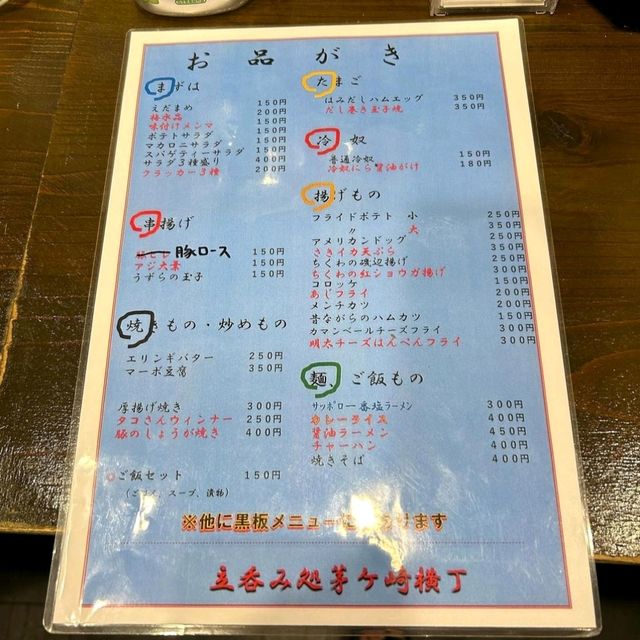 お品がき
まずは
えだまめ 150円
梅水晶 200円
味付けメンマ 150円
ポテトサラダ 150円
マカロニサラダ 150円
スパゲティーサラダ 150円
サラダ3種盛り 400円
クラッカー3種 200円
串揚げ
豚ロース 150円
アジ大葉 150円
うずらの玉子 150円
焼きもの・炒めもの
エリンギバター 250円
マーボ豆腐 350円
厚揚げ焼き 300円
タコさんウィンナー 250円
豚のしょうが焼き 400円
ご飯セット 150円
スープ、漬物)
たまご
はみだしハムエッグ 350円
だし巻き玉子焼 350円
冷奴
普通冷奴 150円
冷奴にら醤油がけ 180円
揚げもの
フライドポテト 小 250円
〃 大 350円
アメリカンドッグ 250円
さきイカ天ぷら 350円
ちくわの磯辺揚げ 250円
ちくわの紅ショウガ揚げ 300円
コロッケ 150円
あじフライ 200円
メンチカツ 200円
昔ながらのハムカツ 300円
カマンベールチーズフライ 300円
明太チーズはんぺんフライ 300円
麺、ご飯もの
サッポロ一番塩ラーメン 300円
カレーライス 400円
醤油ラーメン 450円
チャーハン 400円
焼きそば 400円
※他に黒板メニュー
ります
立呑み処茅ケ崎横丁